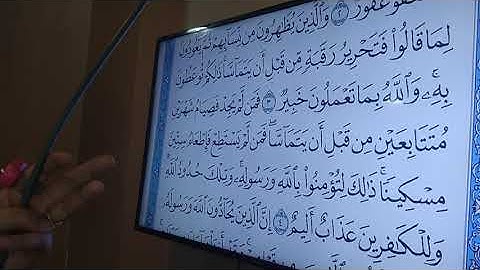 لَعَفُوٌّ غَفُورٌ ٢ وَالَّذِينَ يُظَاهِرُونَ مِن نِّسَائِهِمْ ثُمَّ يَعُودُونَ
لِمَا قَالُوا فَتَحْرِيرُ رَقَبَةٍ مِّن قَبْلِ أَن يَتَمَاسَّا ذَٰلِكُمْ تُوعَظُونَ
بِهِ وَاللَّهُ بِمَا تَعْمَلُونَ خَبِيرٌ ٣ فَمَن لَّمْ يَجِدْ فَصِيَامُ شَهْرَيْنِ
مُتَتَابِعَيْنِ مِن قَبْلِ أَن يَتَمَاسَّا فَمَن لَّمْ يَسْتَطِعْ فَإِطْعَامُ سِتِّينَ
مِسْكِينًا ذَٰلِكَ لِتُؤْمِنُوا بِاللَّهِ وَرَسُولِهِ وَتِلْكَ حُدُودُ اللَّهِ
وَلِلْكَافِرِينَ عَذَابٌ أَلِيمٌ ٤ إِنَّ الَّذِينَ يُحَادُّونَ اللَّهَ وَرَسُولَهُ